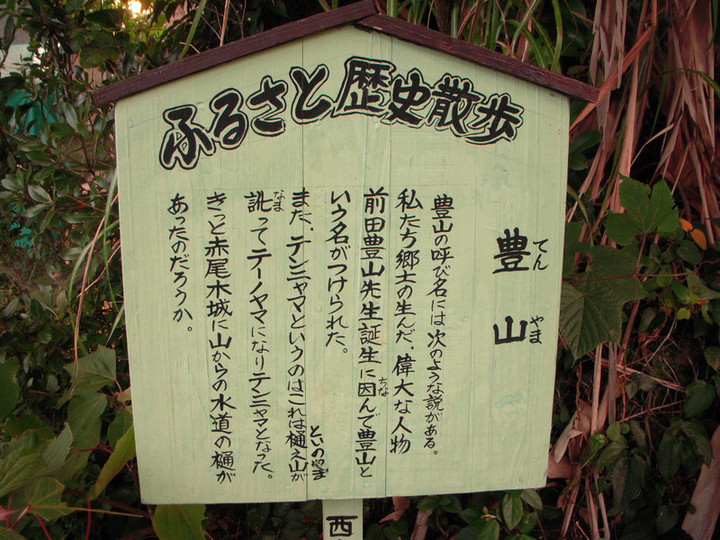 ふるさと歴史散歩
豊山
てんやま
豊山の呼び名には次のような説がある。
私たち郷土の生んだ、偉大な人物
前田豊山先生誕生に因んで豊山と
ちな
いう名がつけられた。
また、テンニャマというのはこれは樋之山が
といのやま
訛ってテーノヤマになりテンニャマとなった。
なま
きっと赤尾木城に山からの水道の樋が
あったのだろうか。
西